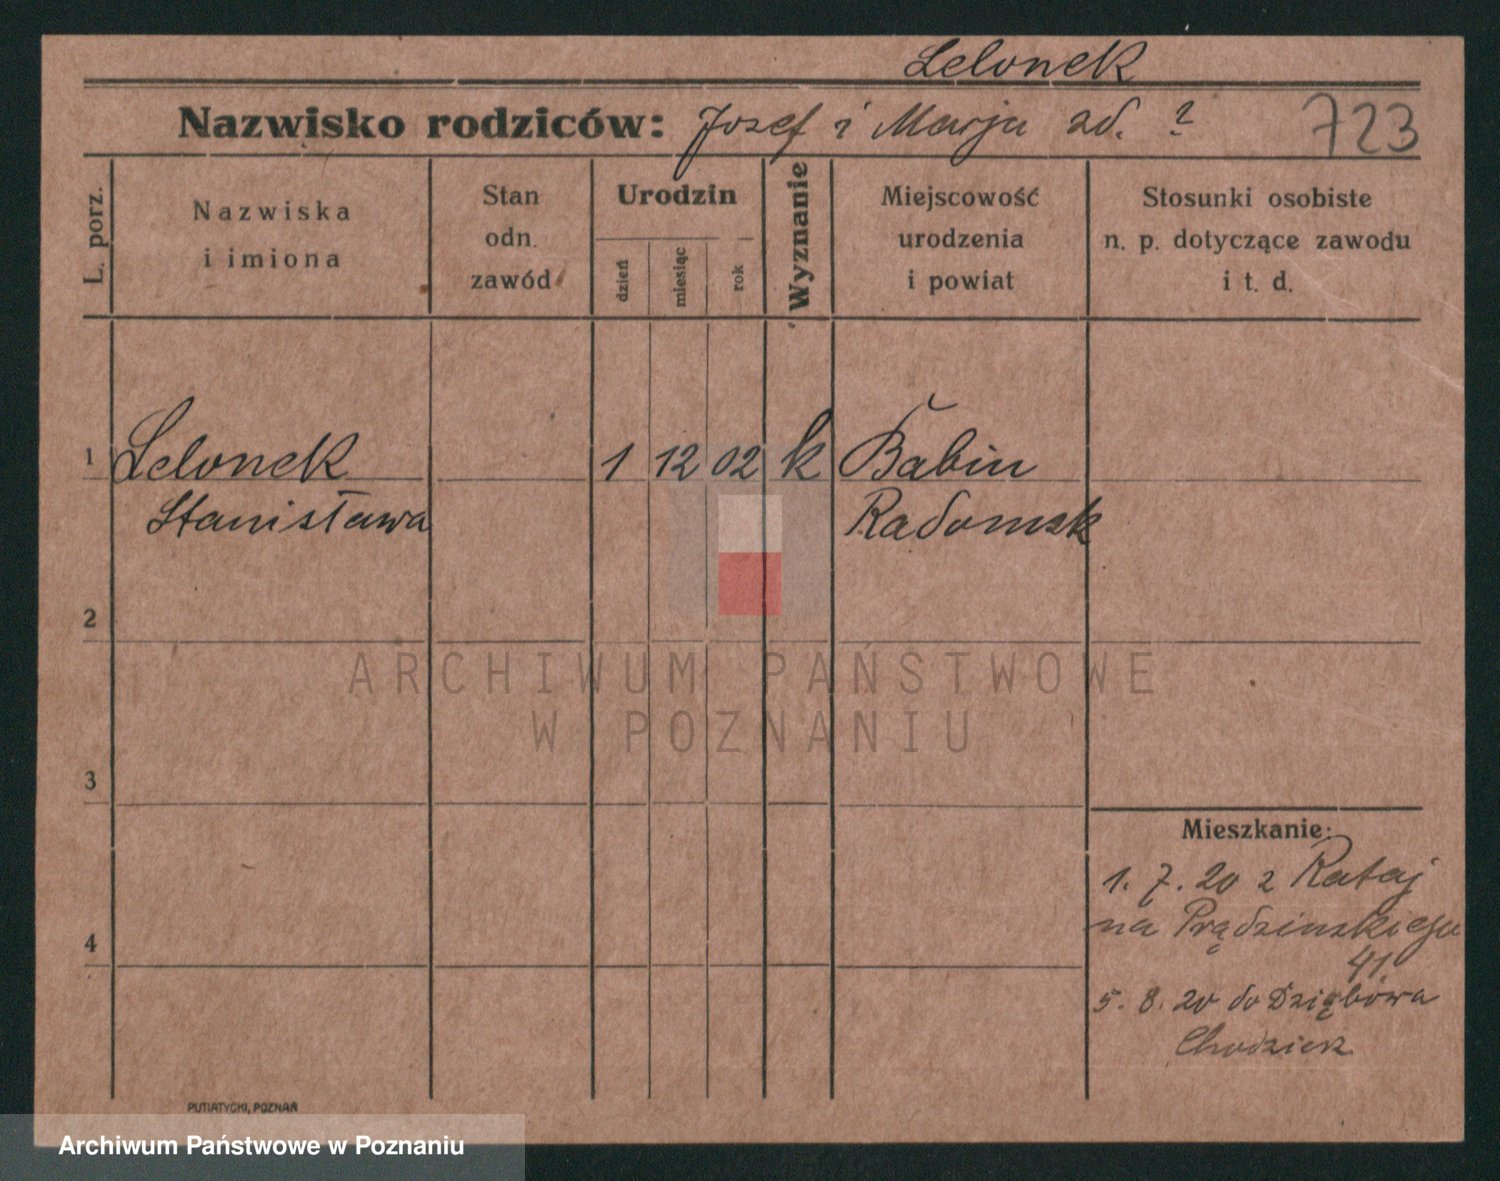 Lelonek
Nazwisko rodziców: Jozef i Marja zd. ? 723
L. porz.
Nazwiska
i imiona
Stan
odn.
zawód
Urodzin
dzień
miesiąc
rok
Wyznanie
Miejscowość
urodzenia
i powiat
Stosunki osobiste
n. p. dotyczące zawodu
i t. d.
1 Lelonek 1 12 02 k Babin
Stanisława Radomsk
2
3
4
Mieszkanie:
1. 7. 20 z Rataj
na Prądzinskiego
41.
5. 8. 20 do Dziębowa
Chodzież
PUTIATYCKI, POZNAŃ
ARCHIWUM PAŃSTWOWE
W POZNANIU
Archiwum Państwowe w Poznaniu